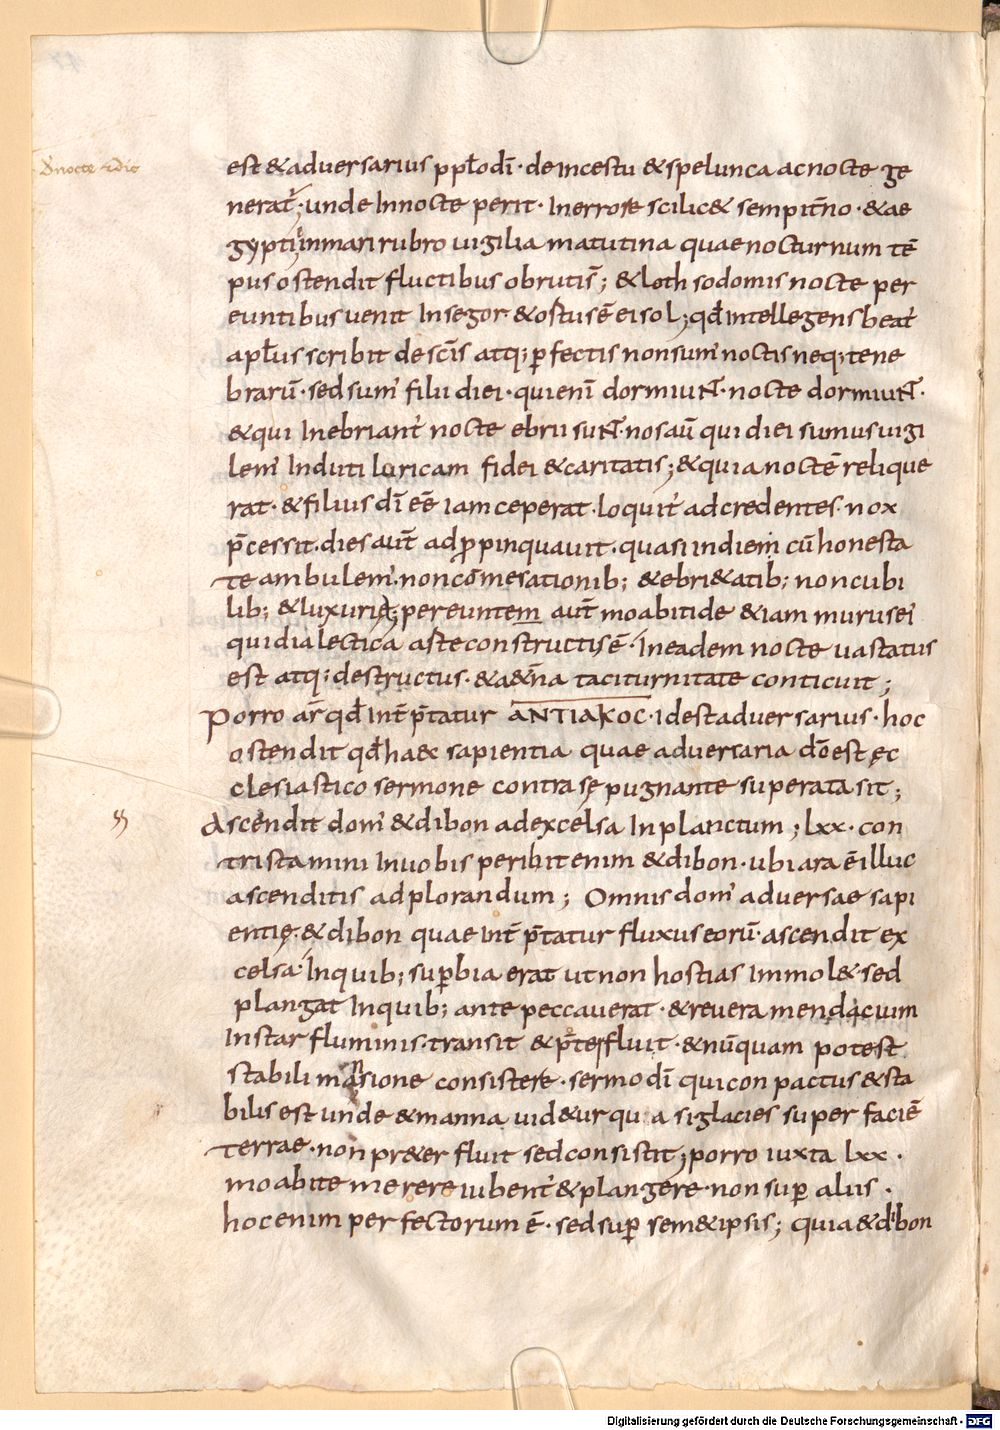 est &adversarius ppl̅o dī· de incestu &spelunca ac nocte ge
nerat᷑; unde In nocte perit· In errore scilic& sempit̅no· &ae
gyptii in mari rubro uigilia matutina quae nocturnum tē
pus ostendit fluctibus obruti s̅; &loth sodomis nocte per
euntibus uenit In segor· &ostus ē ei sol; qd̅ Intellegens beat᷑
apl̅us scribit de sc̅is atq; p̲fectis non sum᷑ noctis neq; tene
brarū· sed sum᷑ filii diei· qui enī dormiunt· nocte dormiunt·
&qui Inebriant᷑ nocte ebrii sunt· nos aū qui diei sumus uigi
lem᷑ Induti loricam fidei &caritatis; &quia noctē relique
rat· &filius dī eē̅ iam ceperat· loquit᷑ ad credentes· nox
p̅cessit· dies aut̅ adp̲pinquauit· quasi in diem cū honesta
te ambulem᷑· non com̅esationib; &ebri&atib; non cubi
lib; &luxurię; pereuntem aut̅ moabitide &iam murus ei᷑
qui dialectica aste constructus ē· In eadem nocte uastatus
est atq; destructus· &a&n̅a taciturnitate conticuit;
Porro ar᷑ qd̅ Int̅p̅tatur ΑΝΤΙΔΙΚΟC· id est adversarius· hoc
ostendit qd̅ ha&c sapientia quae adversaria dō est ęc
clesiastico sermone contra se pugnante superata sit;
Ascendit dom᷑ &dibon ad excelsa In planctum; lxx· con
tristamini In uobis peribit enim &dibon· ubi ara ē illuc
ascenditis ad plorandum; Omnis dom᷑ adversae sapi
entię· &dibon quae Int̅p̅tatur fluxus eorū· ascendit ex
celsa· In quib; sup̲bia erat ut non hostias Immol& sed
plangat In quib; ante peccauerat· &reuera mendacium
Instar fluminis· transit &p̅terfluit· &nūquam potest
stabili mansione consistere· sermo dī qui conpactus &sta
bilis est unde &manna uid&ur quasi glacies super faciē
terrae· non pr&erfluit sed consistit; porro iuxta lxx·
moabite merere iubent᷑ &plangere· non sup̲ aliis·
hoc enim perfectorum ē· sed sup̲ sem&ipsis; quia &dibon
Digitalisierung gefördert durch die Deutsche Forschungsgemeinschaft - DFG